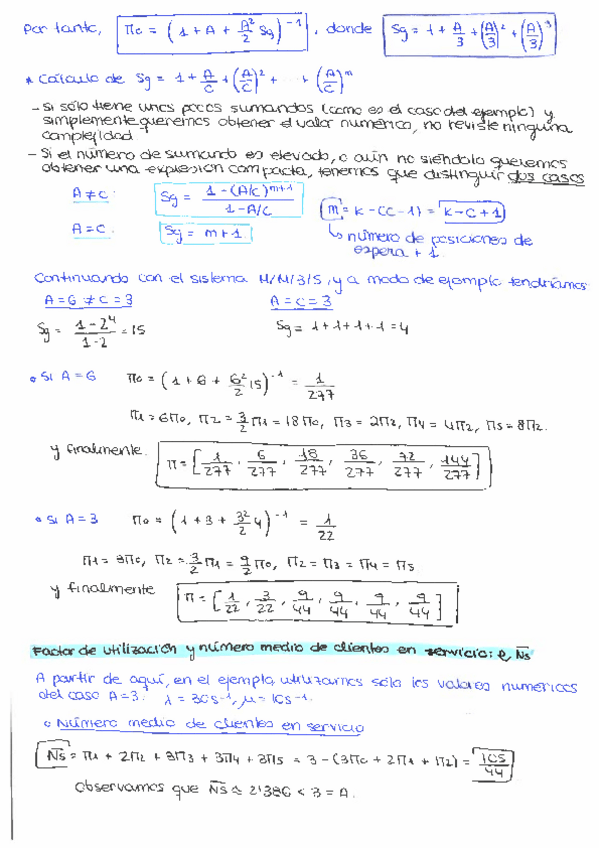 Por tanto, Π₀ = (1 + A + A²/2 Sg)⁻¹, donde Sg = 1 + A/3 + (A/3)² + (A/3)³
* Cálculo de Sg = 1 + A/C + (A/C)² + ... + (A/C)^m
- Si sólo tiene unos pocos sumandos (como es el caso del ejemplo) y
simplemente queremos obtener el valor numérico, no reviste ninguna
complejidad
- Si el número de sumando es elevado, o aún no siéndolo queremos
obtener una expresión compacta, tenemos que distinguir dos casos
A ≠ C: Sg = (1 - (A/C)^(m+1)) / (1 - A/C) m = K - (C - 1) = K - C + 1
A = C: Sg = m + 1 ↳ número de posiciones de
espera + 1.
Continuando con el sistema M/M/3/5, y a modo de ejemplo tendríamos:
A = 6 ≠ C = 3 A = C = 3
Sg = (1 - 2⁴)/(1 - 2) = 15 Sg = 1 + 1 + 1 + 1 = 4
• Si A = 6 Π₀ = (1 + 6 + 6²/2 15)⁻¹ = 1/277
Π₁ = 6Π₀, Π₂ = 3/2 Π₁ = 18Π₀, Π₃ = 2Π₂, Π₄ = 4Π₂, Π₅ = 8Π₂.
y finalmente. Π = [1/277, 6/277, 18/277, 36/277, 72/277, 144/277]
• Si A = 3 Π₀ = (1 + 3 + 3²/2 4)⁻¹ = 1/22
Π₁ = 3Π₀, Π₂ = 3/2 Π₁ = 9/2 Π₀, Π₂ = Π₃ = Π₄ = Π₅
y finalmente Π = [1/22, 3/22, 9/44, 9/44, 9/44, 9/44]
Factor de utilización y número medio de clientes en servicio: ρ, N̄s
A partir de aquí, en el ejemplo utilizamos sólo los valores numéricos
del caso A = 3: λ = 30s⁻¹, μ = 10s⁻¹.
o Número medio de clientes en servicio
N̄s = Π₁ + 2Π₂ + 3Π₃ + 3Π₄ + 3Π₅ = 3 - (3Π₀ + 2Π₁ + Π₂) = 105/44
Observamos que N̄s ≈ 2'386 < 3 = A.